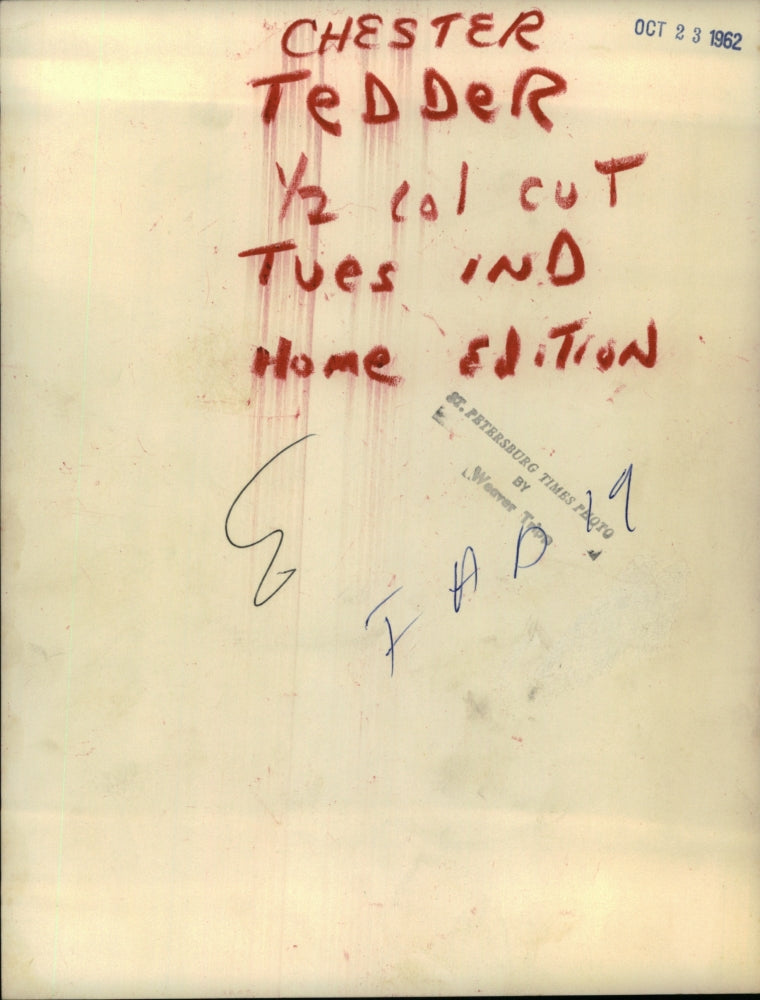 OCT 23 1962
CHESTER
TeDDeR
1/2 Col CUT
TUes IND
Home EdiTION
ST. PETERSBURG TIMES PHOTO
BY
Weaver Tripp